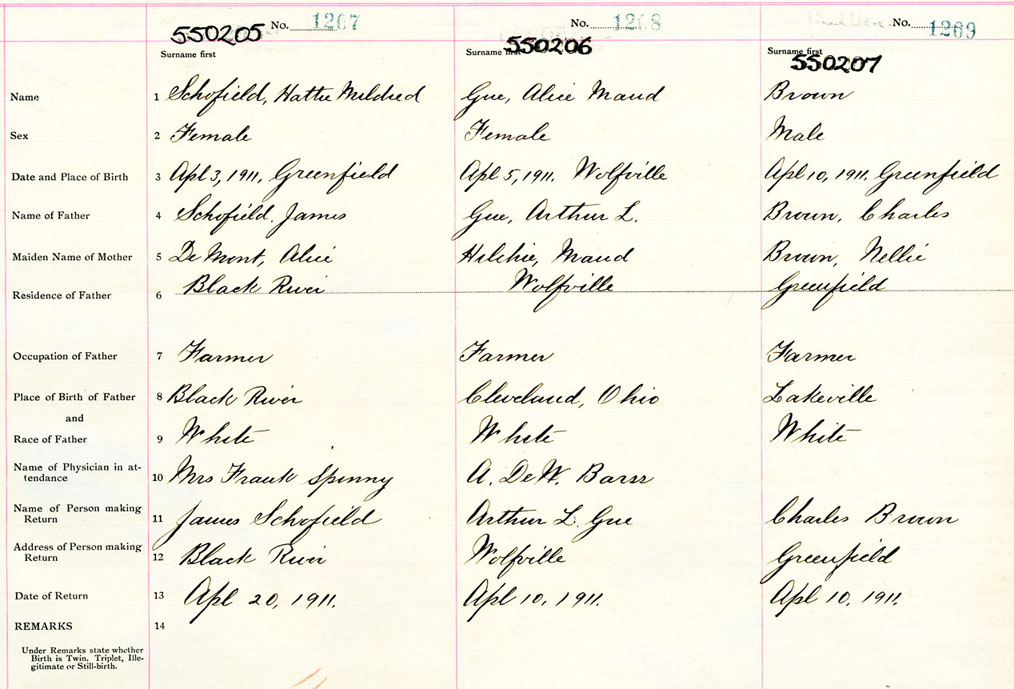 No. 1207 No. 1208 No. 1209
550205 550206 550207
Surname first Surname first Surname first
Name 1 Schofield, Hattie Mildred Gue, Alice Maud Brown
Sex 2 Female Female Male
Date and Place of Birth 3 Apl 3, 1911, Greenfield Apl 5, 1911. Wolfville Apl 10, 1911, Greenfield
Name of Father 4 Schofield, James Gue, Arthur L. Brown, Charles
Maiden Name of Mother 5 De Mont, Alice Hilchie, Maud Brown, Nellie
Residence of Father 6 Black River Wolfville Greenfield
Occupation of Father 7 Farmer Farmer Farmer
Place of Birth of Father 8 Black River Cleveland, Ohio Lakeville
and
Race of Father 9 White White White
Name of Physician in at-
tendance 10 Mrs Frank Spinny A. DeW. Barss
Name of Person making
Return 11 James Schofield Arthur L. Gue Charles Brown
Address of Person making
Return 12 Black River Wolfville Greenfield
Date of Return 13 Apl 20, 1911. Apl 10, 1911. Apl 10, 1911.
REMARKS 14
Under Remarks state whether
Birth is Twin, Triplet, Ille-
gitimate or Still-birth.